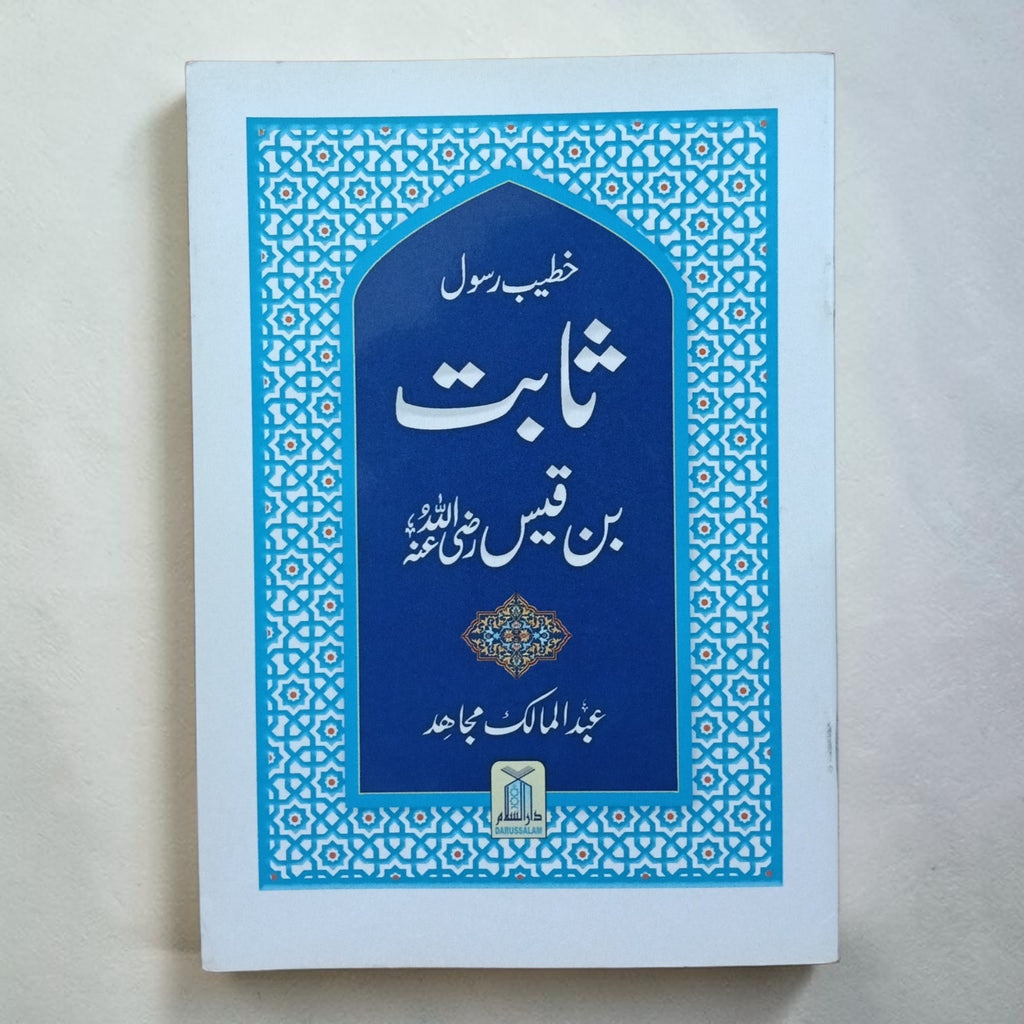 خطیب رسول
ثابت
بن قیس رضی اللہ عنہ
عبدالمالک مجاہد
دارالسلام
DARUSSALAM